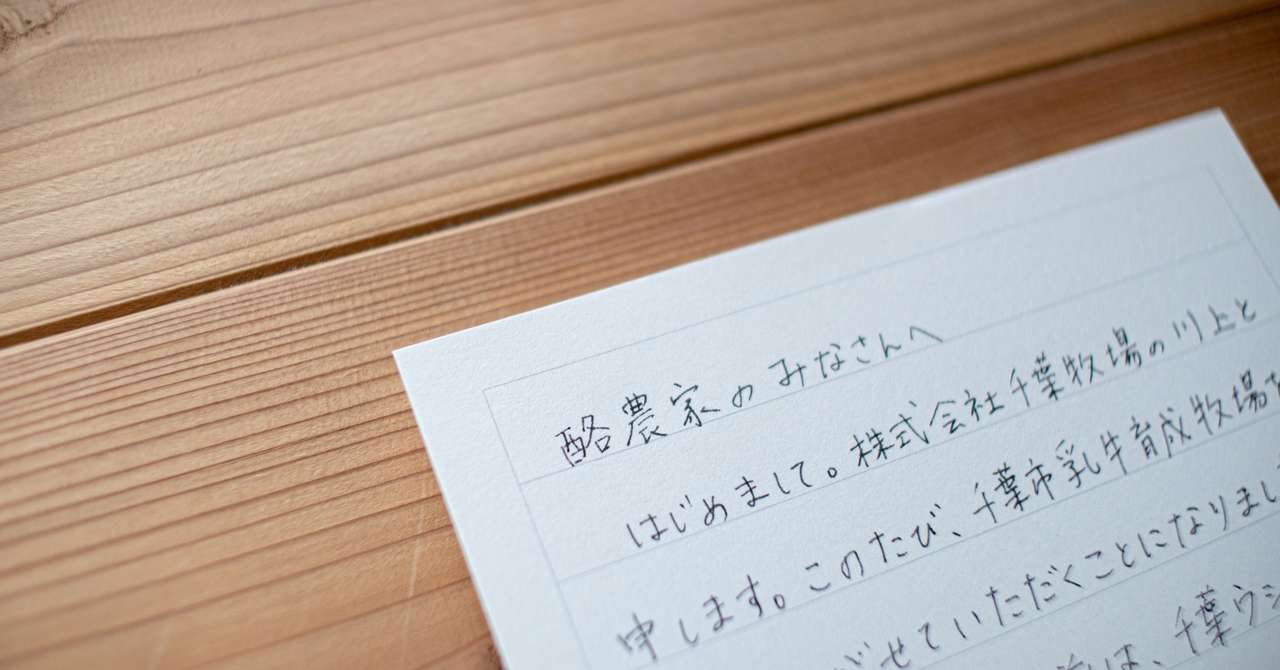 酪農家のみなさんへ
はじめまして。株式会社千葉牧場の川上と
申します。このたび、千葉市乳牛育成牧場を
せていただくことになりまし
は、千葉ウシ